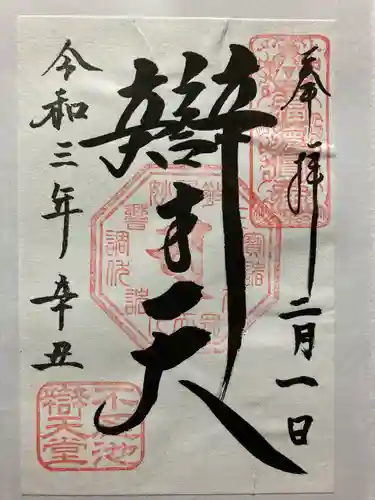 奉拝
二月一日
辯才天
令和三年辛丑
不忍池
辯天堂